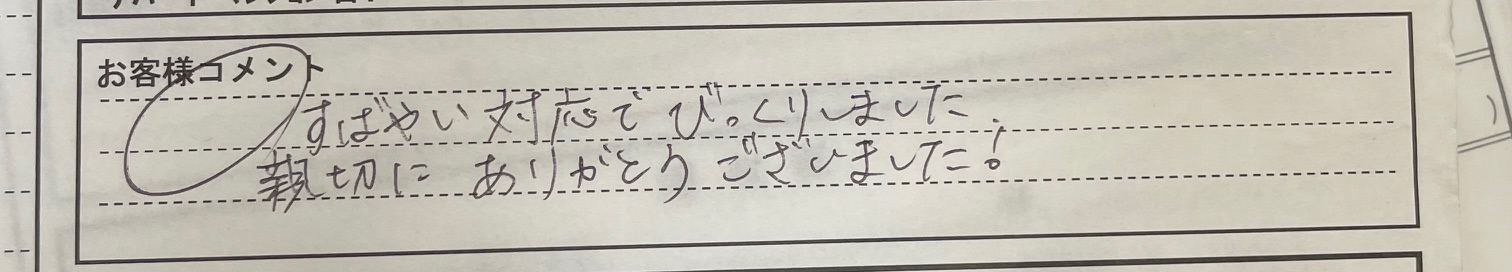 お客様コメント
すばやい対応でびっくりしました.
親切にありがとうございました!